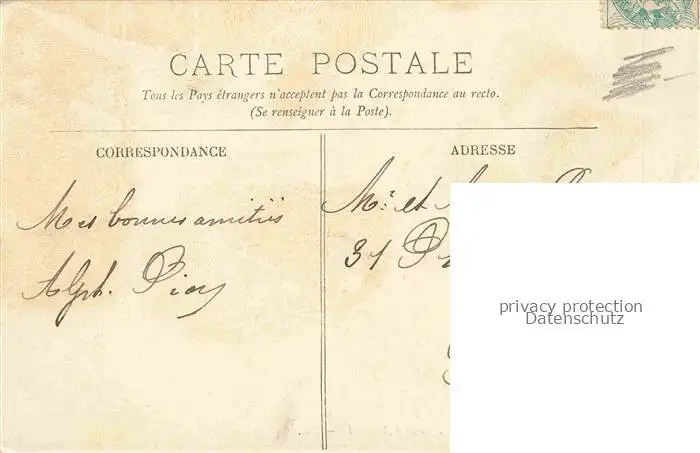 CARTE POSTALE
Tous les Pays étrangers n'acceptent pas la Correspondance au recto.
(Se renseigner à la Poste).
CORRESPONDANCE
Mes bonnes amitiés
Alph.
ADRESSE
Mr. et
31
privacy protection
Datenschutz